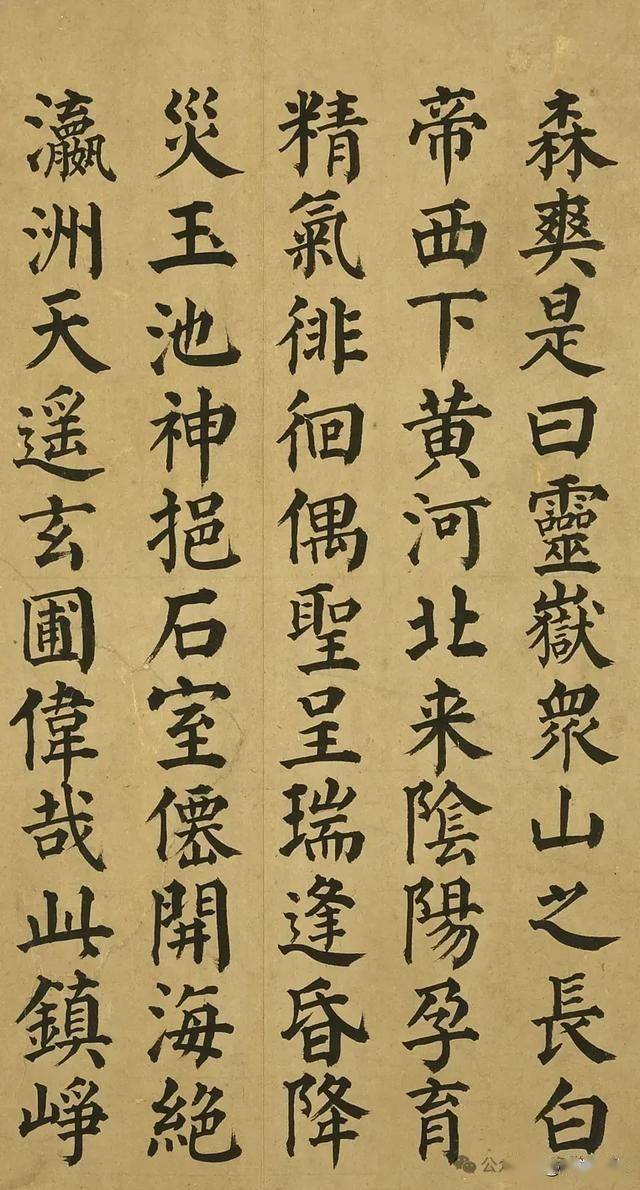 森爽是曰靈嶽衆山之長白
帝西下黄河北来陰陽孕育
精氣徘徊偶聖呈瑞逢昏降
災玉池神挹石室僊開海絕
瀛洲天遥玄圃偉哉此鎮崢
公